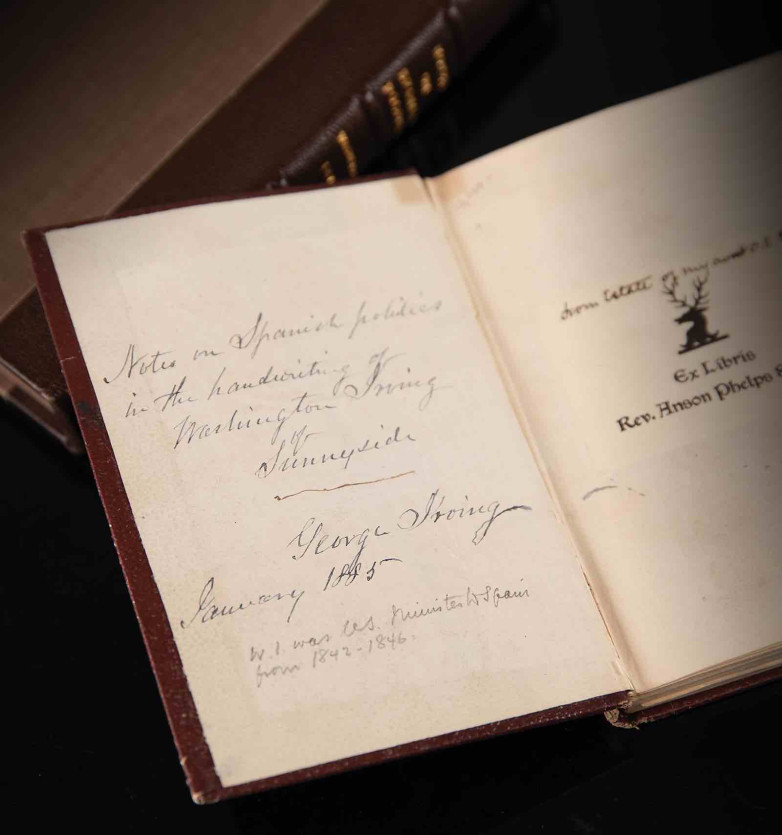 Notes on Spanish politics
in the handwriting of
Washington Irving
of
Sunnyside
George Irving
January 1885
W. I. was U.S. Minister to Spain
from 1842-1846.
from Estate of my aunt
Ex Libris
Rev. Anson Phelps S